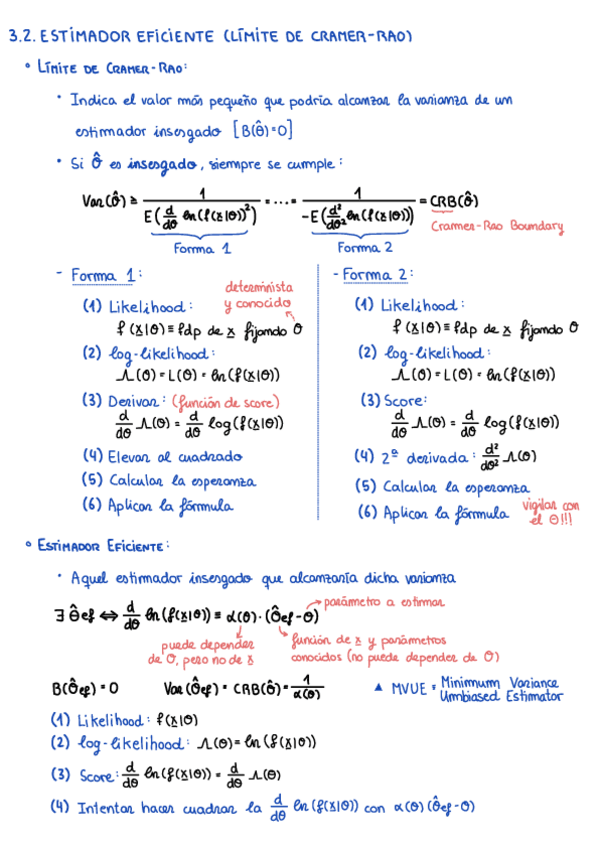 3.2. ESTIMADOR EFICIENTE (LÍMITE DE CRAMER-RAO)
° LÍMITE DE CRAMER-RAO:
· Indica el valor más pequeño que podría alcanzar la varianza de un
estimador insesgado [B(θ̂)=0]
· Si θ̂ es insesgado, siempre se cumple:
Var(θ̂) ≥ 1 / E((d/dθ ln(f(x|θ))²) = ... = 1 / -E(d²/dθ² ln(f(x|θ))) = CRB(θ̂)
Cramer-Rao Boundary
Forma 1 Forma 2
- Forma 1:
determinista
y conocido
(1) Likelihood:
f(x|θ) ≡ fdp de x fijando θ
(2) log-likelihood:
Λ(θ) = L(θ) = ln(f(x|θ))
(3) Derivar: (función de score)
d/dθ Λ(θ) = d/dθ log(f(x|θ))
(4) Elevar al cuadrado
(5) Calcular la esperanza
(6) Aplicar la fórmula
- Forma 2:
(1) Likelihood:
f(x|θ) ≡ fdp de x fijando θ
(2) log-likelihood:
Λ(θ) = L(θ) = ln(f(x|θ))
(3) Score:
d/dθ Λ(θ) = d/dθ log(f(x|θ))
(4) 2ª derivada: d²/dθ² Λ(θ)
(5) Calcular la esperanza
(6) Aplicar la fórmula
vigilar con
el θ!!!
° ESTIMADOR EFICIENTE:
· Aquel estimador insesgado que alcanzaría dicha varianza
∃ θ̂ef ⇔ d/dθ ln(f(x|θ)) = α(θ)·(θ̂ef-θ)
parámetro a estimar
puede depender
de θ, pero no de x
función de x y parámetros
conocidos (no puede depender de θ)
B(θ̂ef) = 0 Var(θ̂ef) = CRB(θ̂) = 1/α(θ) ▲ MVUE = Minimum Variance
Unbiased Estimator
(1) Likelihood: f(x|θ)
(2) log-likelihood: Λ(θ) = ln(f(x|θ))
(3) Score: d/dθ ln(f(x|θ)) = d/dθ Λ(θ)
(4) Intentar hacer cuadrar la d/dθ ln(f(x|θ)) con α(θ)(θ̂ef-θ)